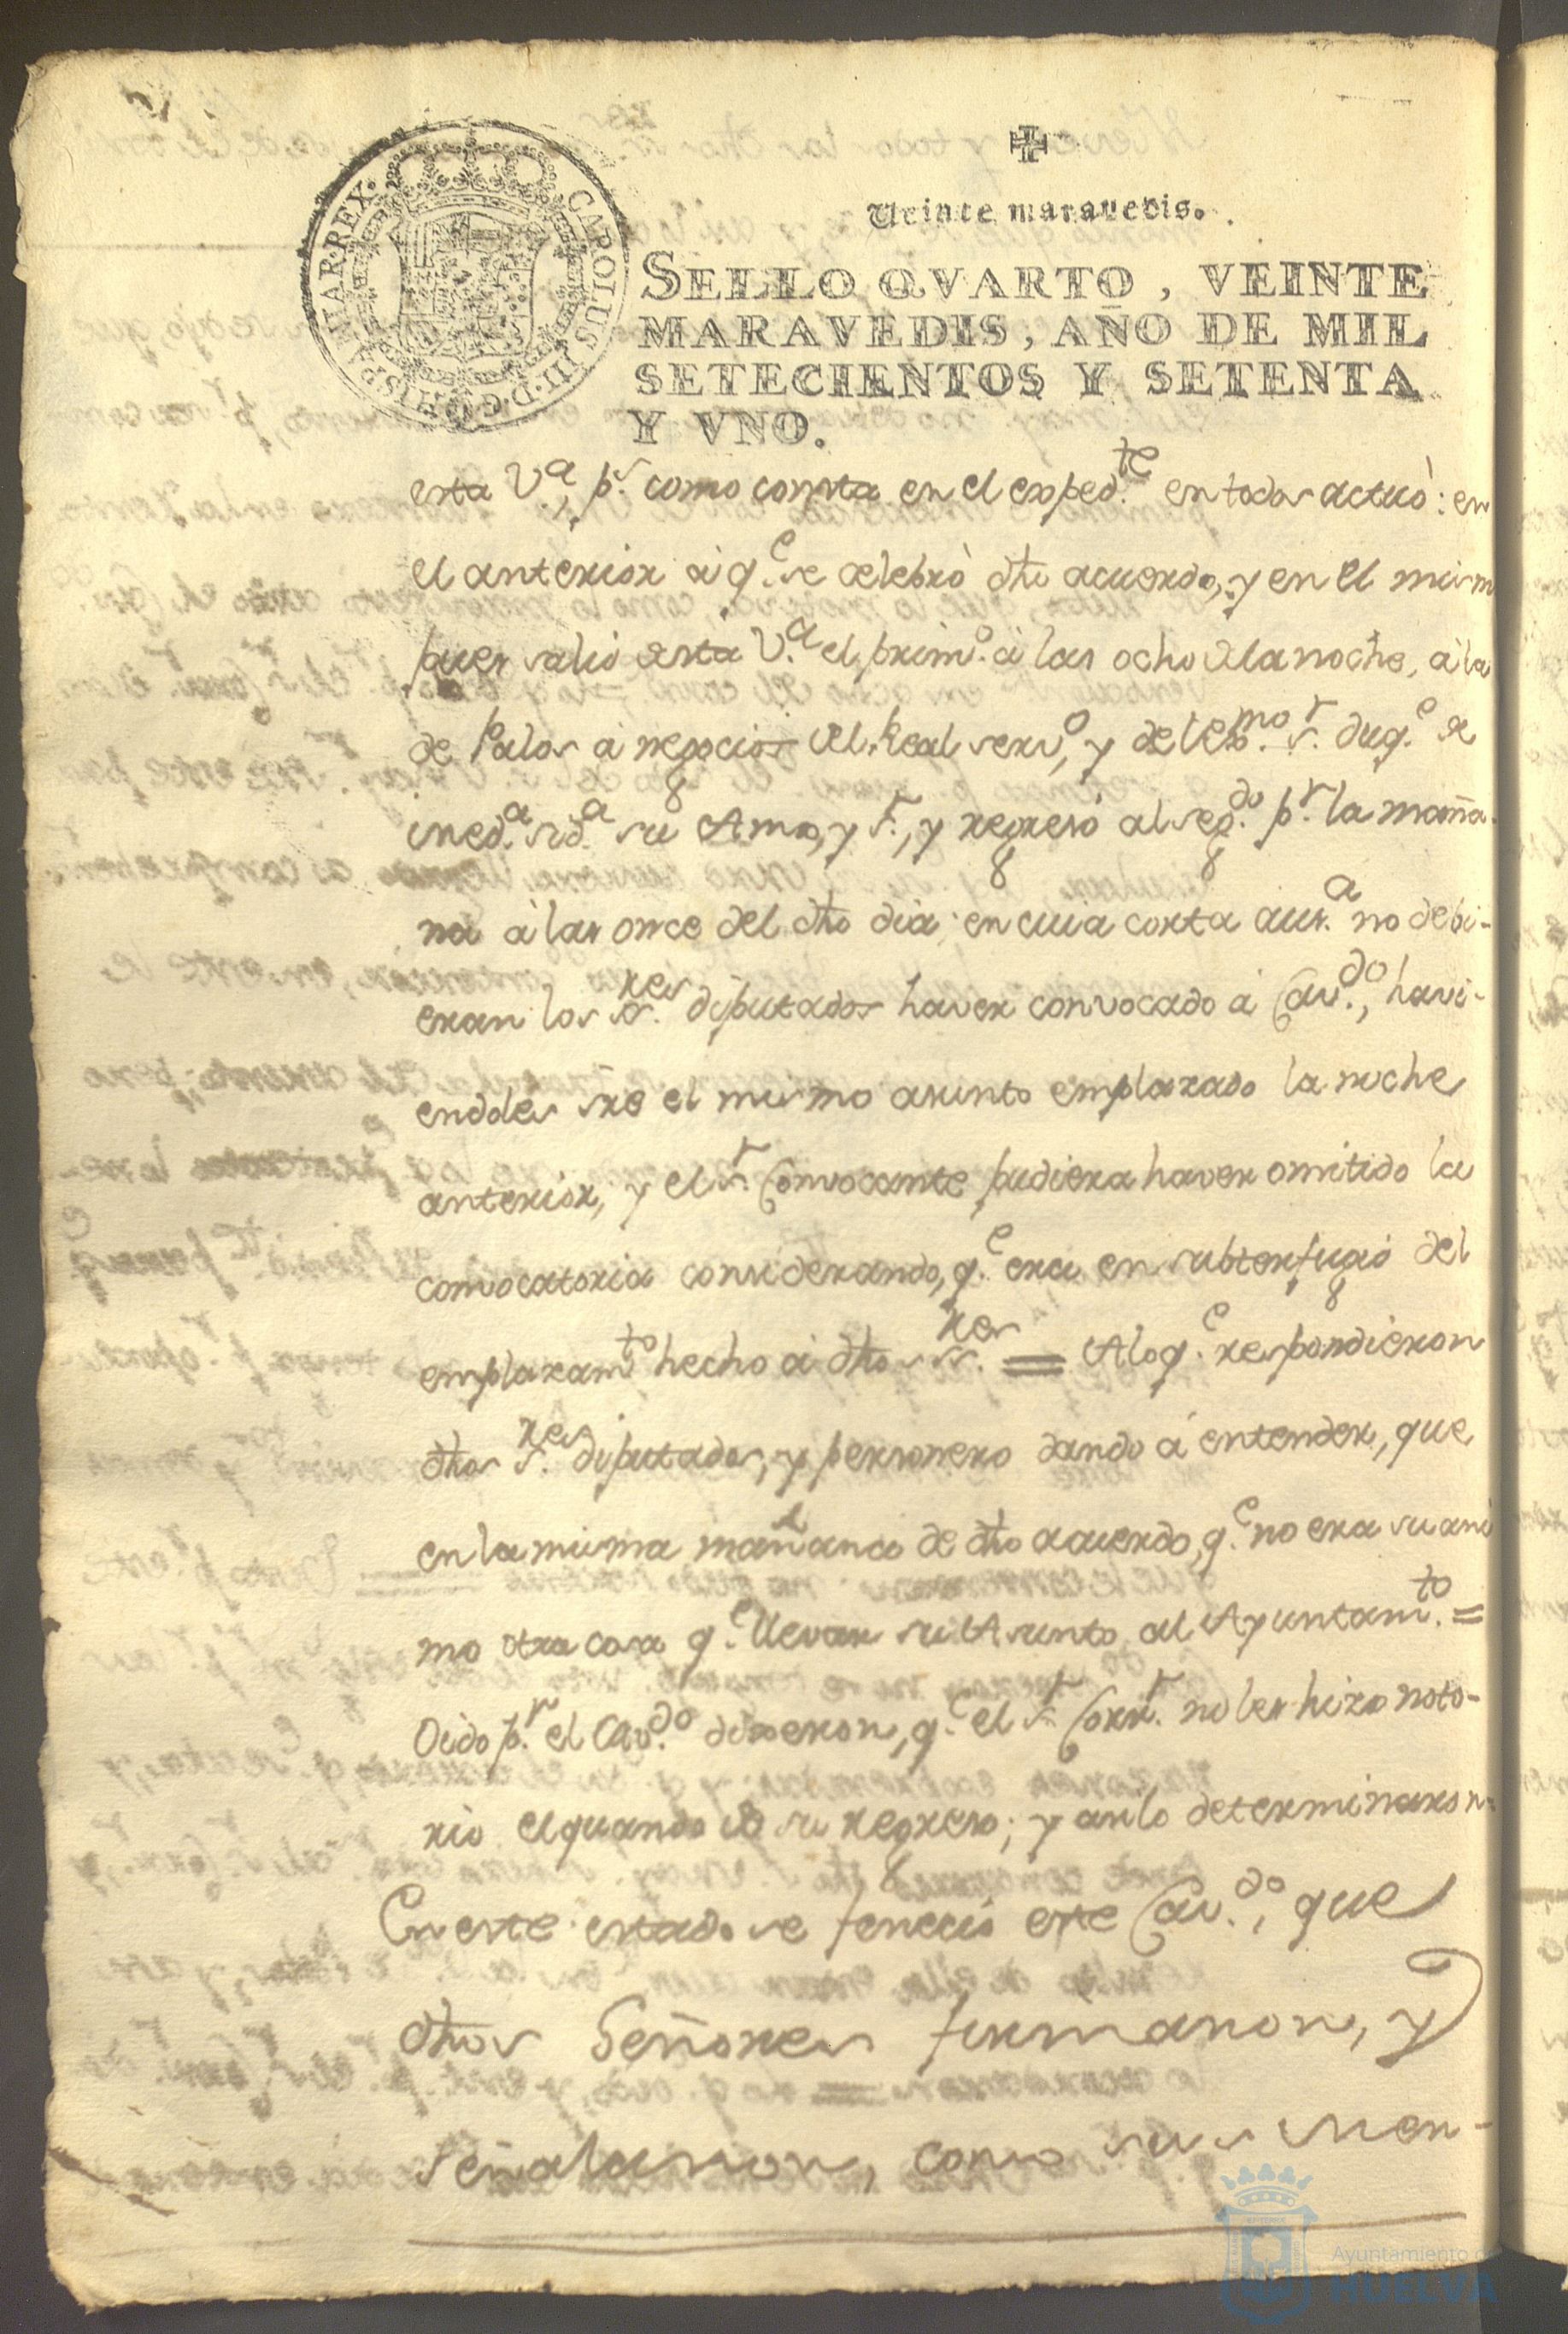 CAROLUS III D G HISP ET IND R
Veinte maravedis.
SELLO QVARTO, VEINTE
MARAVEDIS, AÑO DE MIL
SETECIENTOS Y SETENTA
Y VNO.
esta V.ª, p.r como consta en el exped.te en todas actuó: en
el anterior á q.e se celebró dho acuerdo, y en el mism
pues salió esta V.ª el prim.o á las ocho de la noche, á la
de Palos á negocios del Real serv.o, y del Ex.mo s.r duq.e de
ined.ª sid.ª su Amo, y s.r, y regresó al seg.do p.r la maña-
na á las once del dho dia: en cuia corta aus.ª no debi-
eran los s.res diputados haver convocado á Cav.do, havi-
endoles sre el mismo asunto emplazado la noche
anterior, y el s.r Convocante pudiera haver omitido la
convocatoria considerando, q.e era en subterfugio del
emplazam.to hecho á dhos s.res = A lo q.e respondieron
dhos s.res diputados, y personero dando á entender, que
en la misma mañana de dho acuerdo, q.e no era su ani
mo otra cosa q.e llevar su Asunto al Ayuntam.to =
Oido p.r el Cav.do dixeron, q.e el s.r Corr.r no les hizo noto-
rio el quando de su regreso; y asi lo determinaron
En este estado se feneció este Cav.do, que
dhos Señores firmaron, y
señalaron, como sus Mer-
Ayuntamiento de
HUELVA